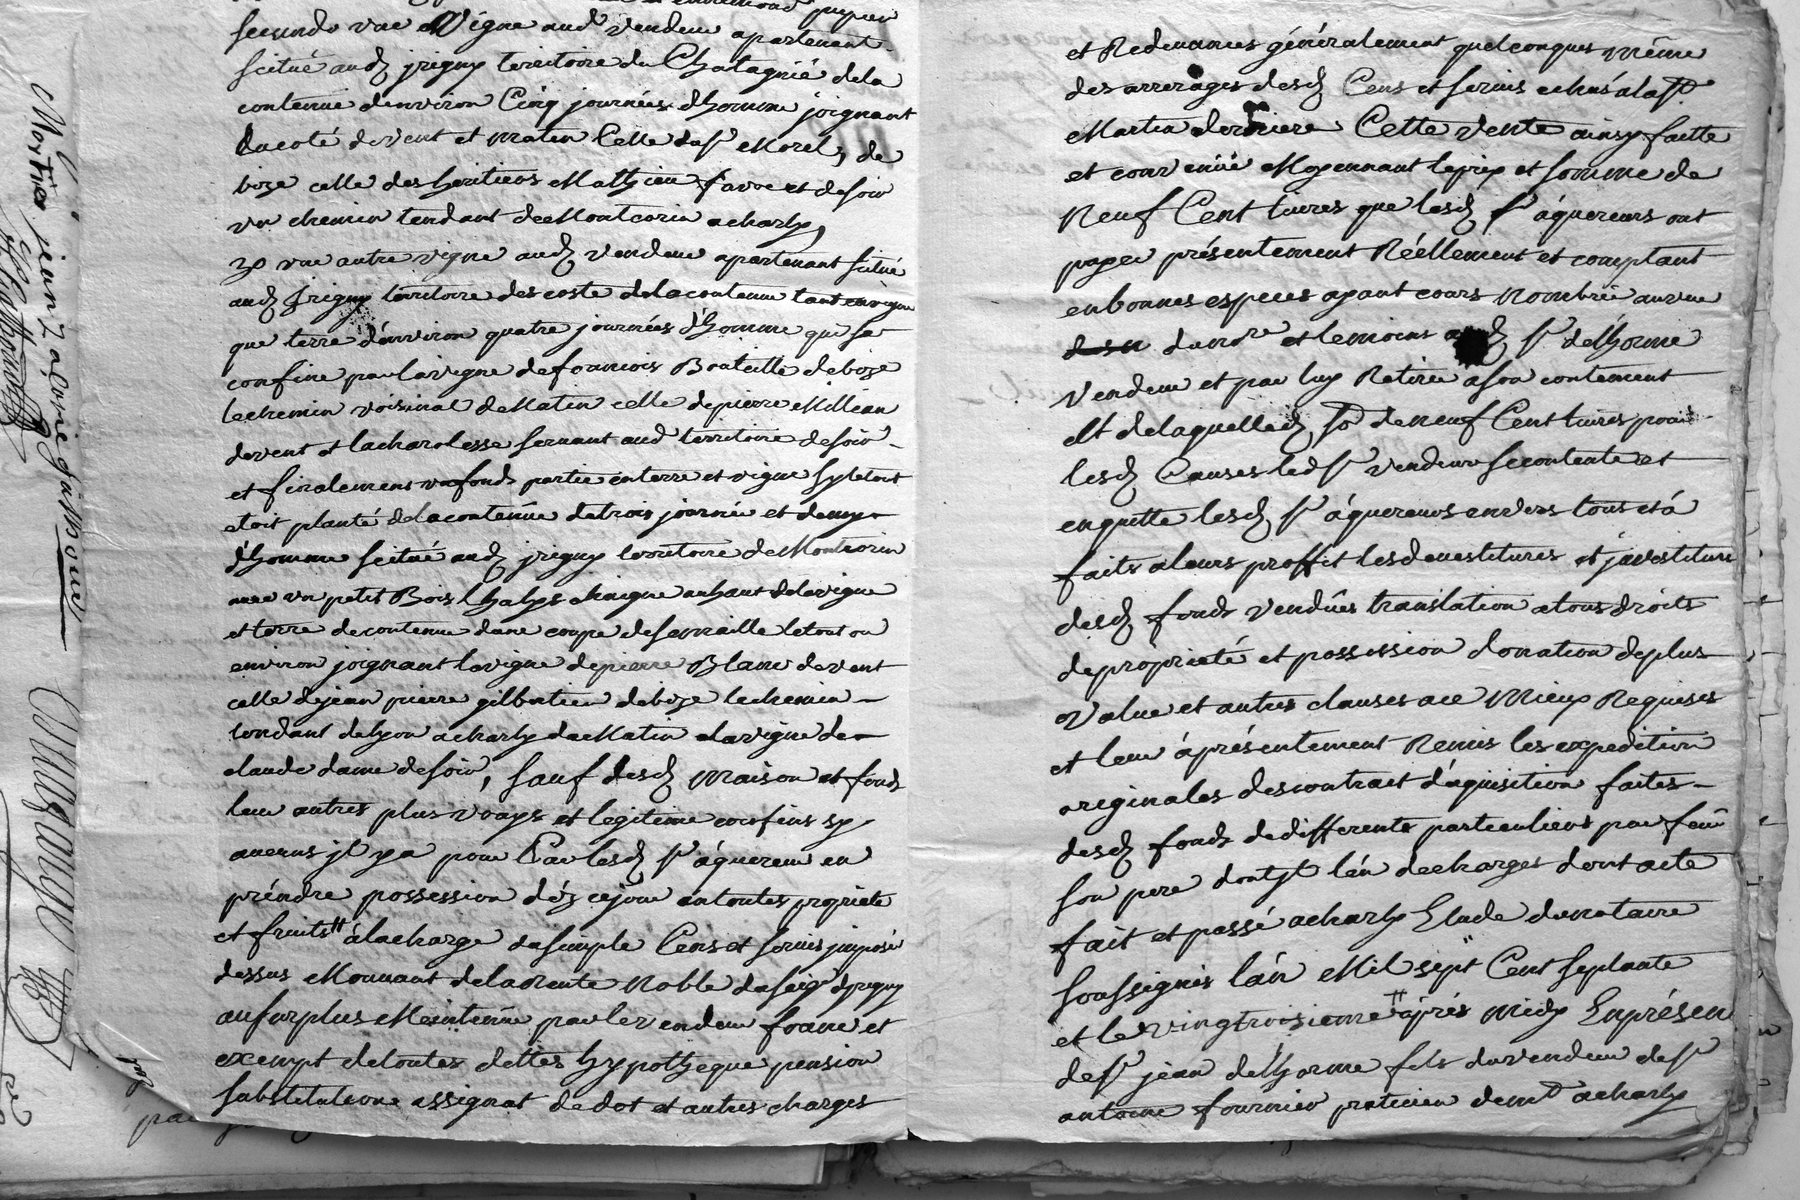 secundo une Vigne aud. Vendeur apartenant
scitué aud. jrigny territoire du Chatagnié dela
contenue denviron Cinq journées dhomme joignant
du coté de vent et matin Celle du sr. Morel, de
bize celle des heritiers Mathieu favre et de soir
un chemin tendant de Montcorin a charly,
3o une autre vigne aud. vendeur apartenant scitué
aud. Jrigny territoire des coste dela contenue tant en vigne
que terre d'environ quatre journées d'homme qui se
confine par la vigne de francois Bouteille de bize
le chemin voisinal de Matin celle de pierre Millian
de vent et la charolesse servant aud. territoire de soir
et finalement un fonds partie en terre et vigne sy le tout
etoit planté dela contenüe de trois journée et demy
d'homme scitué aud. jrigny territoire de Montcorin
avec un petit Bois chaigne au haut dela vigne
et terre de contenue dune coupe de semaille le tout ou
environ joignant la vigne de pierre Blanc de vent
celle de jean pierre gilbertier de bize le chemin
tendant de lyon a charly de Matin la vigne de
claude dame de soir, sauf desd. maison et fonds
leur autres plus vrays et legitime confins sy
aucuns jl y a pour Par lesd. srs. áquereur en
préndre possession déz ce jour en toutes propriete
et fruits álacharge du simple Cens et servis jmposé
dessus Mouvant dela Rente Noble du seigr. djrigny
au surplus Maintenüe par le vendeur franc et
exempt de toutes dettes hypotheque pension
substitutions assignat de dot et autres charges
et Redevances généralement quelconques même
des arrerages desd. Cens et servis echus á la st.
Martin derniere Cette vente ainsy faitte
et convenüe Moyennant le prix et somme de
Neuf Cent livres que lesd. srs. áquereurs ont
payer présentement Réellement et comptant
en bonnes especes ayant cours Nombrée au vue
du nore. et temoins aud. sr. de lhorme
Vendeur et par luy Retiré a son contement
Et de laquelled. so. de neuf Cent livres pour
lesd. Causes led. sr. vendeur se contente et
en quitte lesd. srs. áquereurs envers tous et á
faits a leurs proffit les devestitures et jnvestiture
desd. fonds vendües translation a tous droits
de propriété et possession donation de plus
value et autres clauses a ce Mieux Requises
et leur á présentement Remis les expedition
originales des contrait d'áquisition faites
desd. fonds de differents particuliers par feu
son pere dont jl lén decharges dont acte
fait et passé a charly Etude du notaire
soussignés lán Mil sept Cent septante
et le vingtroisieme áprés midy En présen
de sr. jean de lhorme fils du vendeur de sr.
antoine fournier praticien demt. a charly
Mortier jean Zavrie